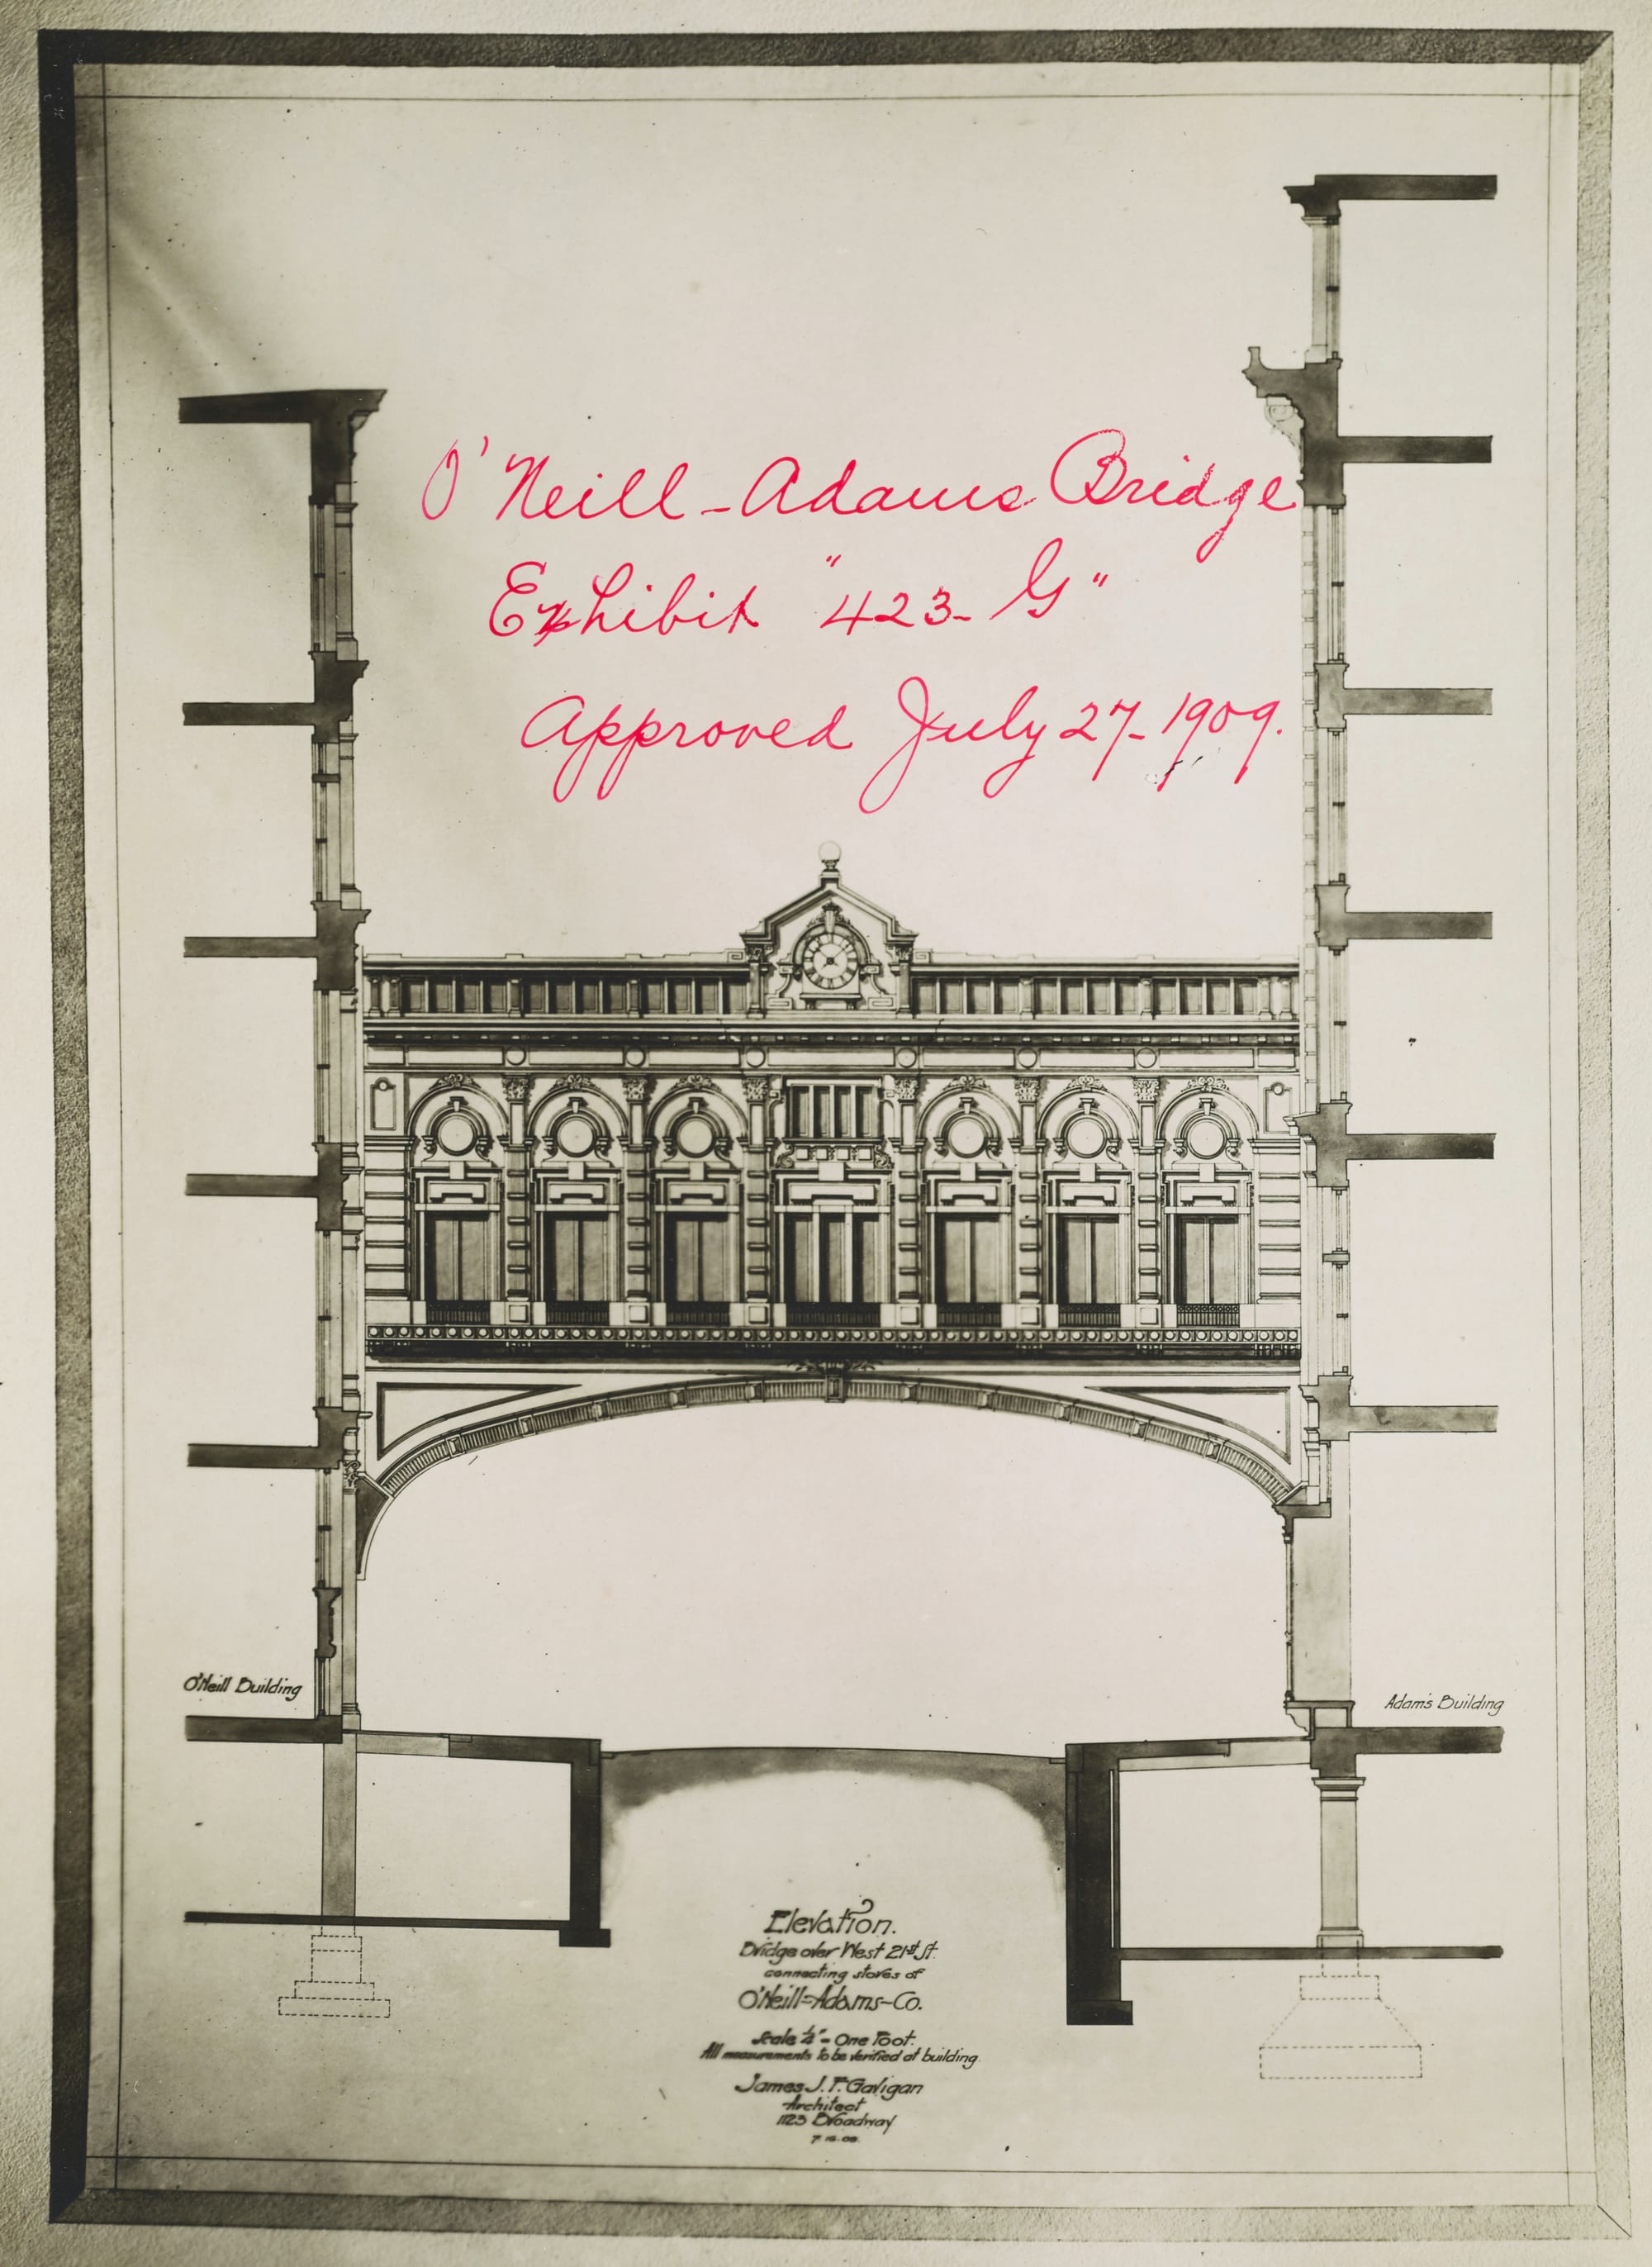 O'Neill-Adams Bridge
Exhibit "423-G"
Approved July 27-1909.
O'Neill Building
Adam's Building
Elevation.
Bridge over West 21st St.
connecting stores of
O'Neill-Adams-Co.
Scale ¼"= One Foot.
All measurements to be verified at building
James J. F. Gavigan
Architect
1123 Broadway